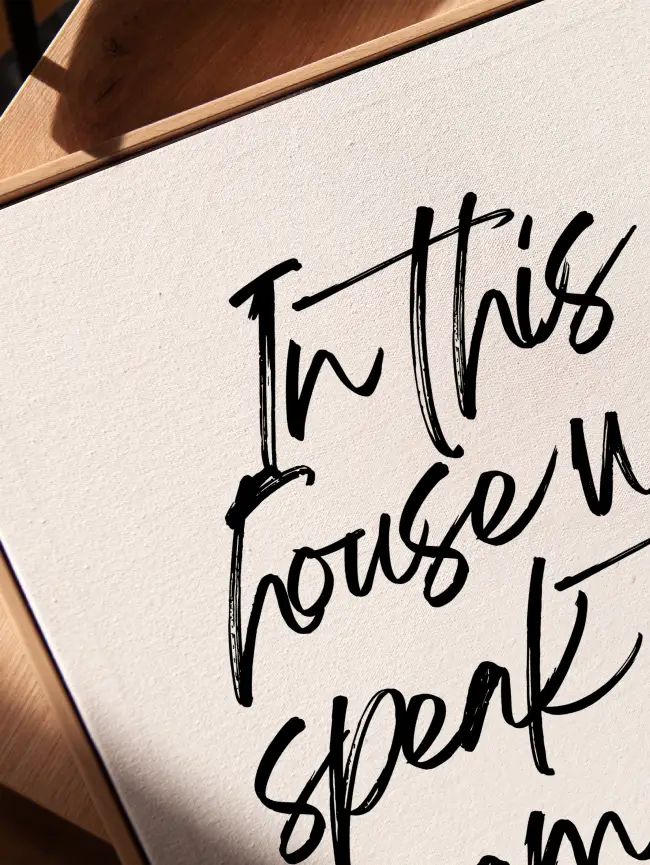 In this
house
speak